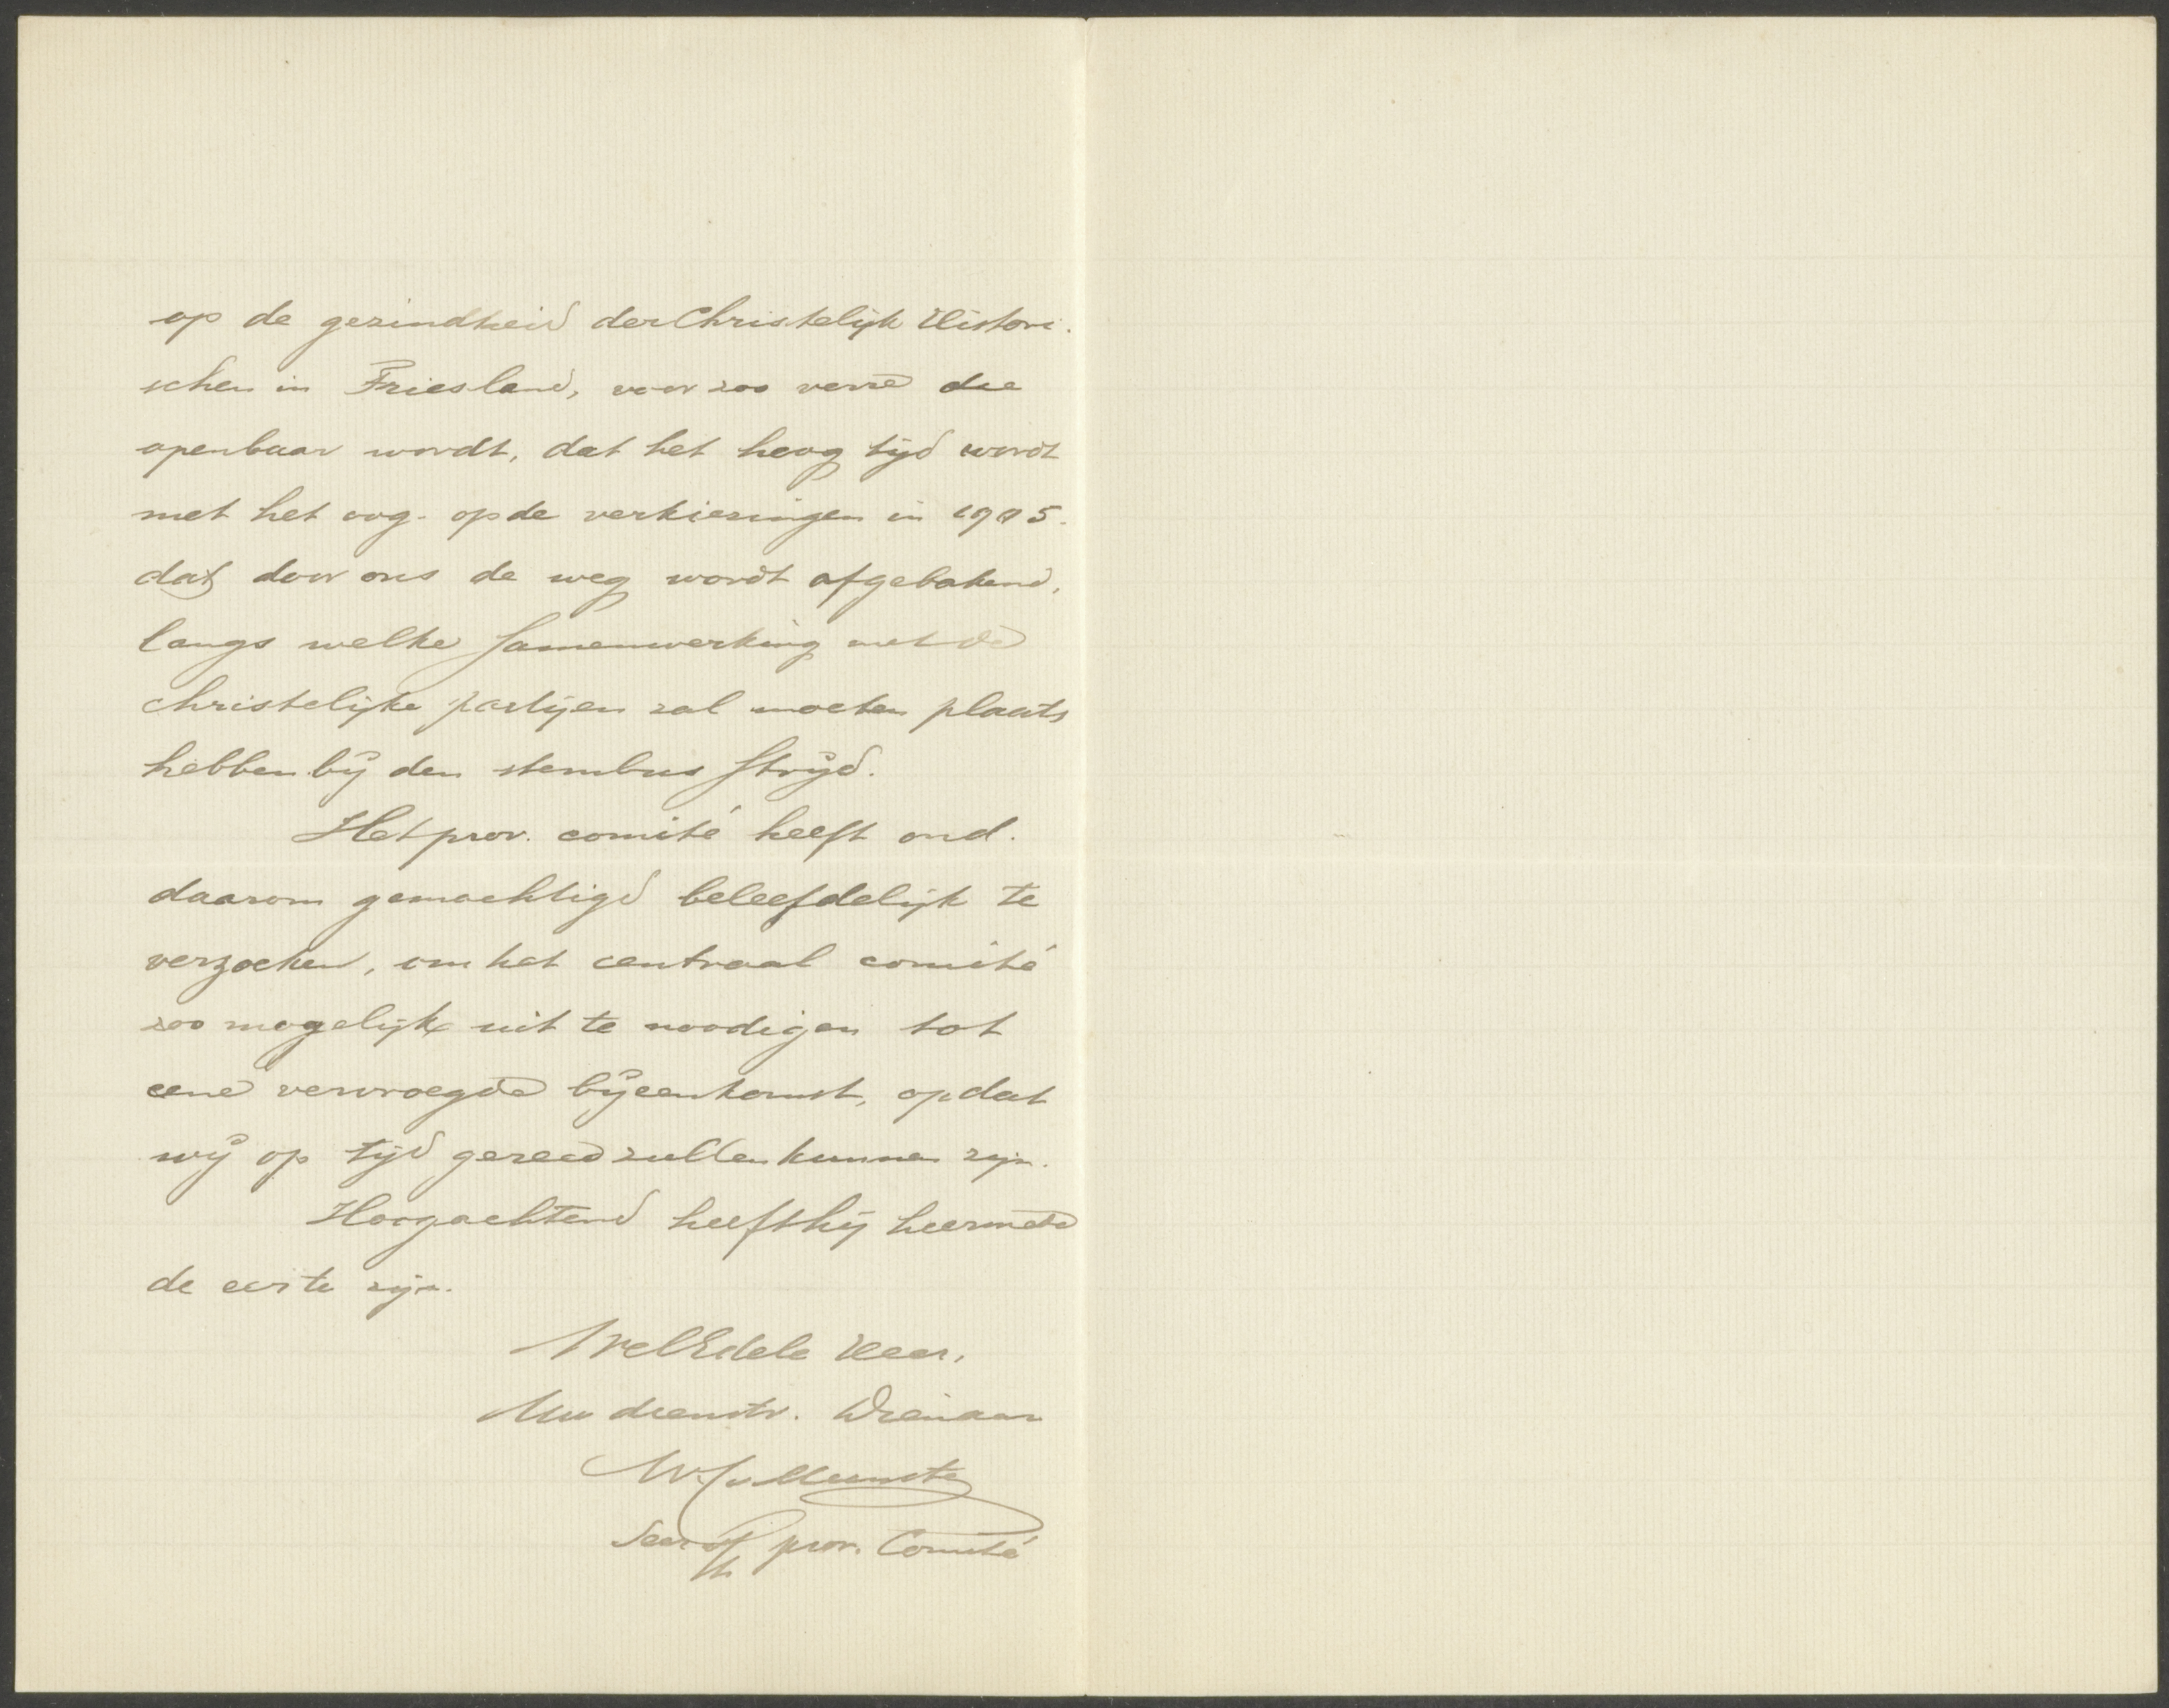 op de gezindheid der Christelijk Histori-
schen in Friesland, voor zoo verre die
openbaar wordt, dat het hoog tijd wordt
met het oog op de verkiezingen in 1905.
dat door ons de weg wordt afgebakend,
langs welke samenwerking met de
christelijke partijen zal moeten plaats
hebben bij den stembus strijd.
Het prov. comité heeft ond.
daarom gemachtigd beleefdelijk te
verzoeken, om het centraal comité
zoo mogelijk uit te noodigen tot
eene vervroegde bijeenkomst, opdat
wij op tijd gereed zullen kunnen zijn.
Hoogachtend heeft hij hiermede
de eer te zijn.
WelEdele Heer,
Uw dienstw. Dienaar
Secr prov. Comité